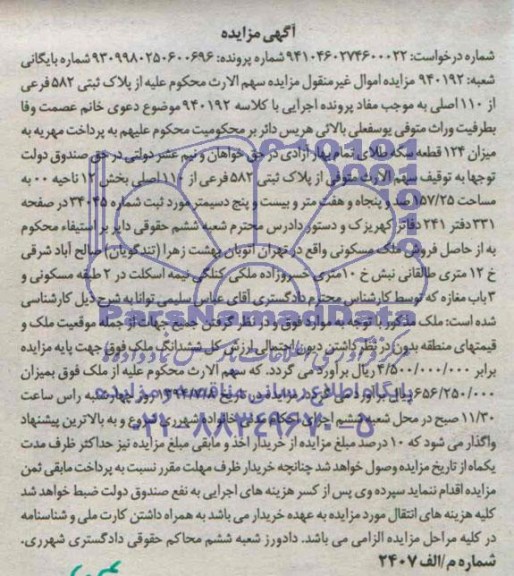 آگهی مزایده
شماره درخواست: ۹۴۱۰۴۶۰۲۷۴۶۰۰۰۲۲ شماره پرونده: ۹۳۰۹۹۸۰۲۵۰۶۰۰۶۹۶ شماره بایگانی
شعبه: ۹۴۰۱۹۲ مزایده اموال غیرمنقول مزایده سهم الارث محکوم علیه از پلاک ثبتی ۵۸۲ فرعی
از ۱۱۰ اصلی به موجب مفاد پرونده اجرایی با کلاسه ۹۴۰۱۹۲ موضوع دعوی خانم عصمت وفا
بطرفیت وراث متوفی یوسفعلی بالائی هریس دائر بر محکومیت محکوم علیهم به پرداخت مهریه به
میزان ۱۲۴ قطعه سکه طلای تمام بهار آزادی در حق خواهان و نیم عشر دولتی در حق صندوق دولت
توجها به توقیف سهم الارث متوفی از پلاک ثبتی ۵۸۲ فرعی از ۱۱۰ اصلی بخش ۱۲ ناحیه ۰۰ به
مساحت ۱۵۷/۲۵ صد و پنجاه و هفت متر و بیست و پنج دسیمتر مورد ثبت شماره ۳۴۰۴۵ در صفحه
۳۳۱ دفتر ۲۴۱ دفاتر کهریزک و دستور دادرس محترم شعبه ششم حقوقی دایر بر استیفاء محکوم
به از حاصل فروش ملک مسکونی واقع در تهران اتوبان بهشت زهرا (تندگویان) صالح آباد شرقی
خ ۱۲ متری طالقانی نبش خ ۱۰ متری خسروزاده ملکی کلنگی نیمه اسکلت در ۲ طبقه مسکونی و
۳ باب مغازه که توسط کارشناس محترم دادگستری آقای عباس سلیمی توانا به شرح ذیل کارشناسی
شده است: ملک مذکور با توجه به موارد فوق و در نظر گرفتن جمیع جهات از جمله موقعیت ملک و
قیمتهای منطقه بدون در نظر داشتن دیون احتمالی ارزش کل ششدانگ ملک فوق جهت پایه مزایده
برابر ۴/۵۰۰/۰۰۰/۰۰۰ ریال برآورد می گردد. که سهم الارث محکوم علیه از ملک فوق بمیزان
۶۵۶/۲۵۰/۰۰۰ ریال برآورد می گردد در مزایده در تاریخ روز چهارشنبه راس ساعت
۱۱/۳۰ صبح در محل شعبه ششم اجرای احکام شهرری شروع و به بالاترین پیشنهاد
واگذار می شود که ۱۰ درصد مبلغ مزایده از خریدار اخذ و مابقی مبلغ مزایده نیز حداکثر ظرف مدت
یکماه از تاریخ مزایده وصول خواهد شد چنانچه خریدار ظرف مهلت مقرر نسبت به پرداخت مابقی ثمن
مزایده اقدام ننماید سپرده وی پس از کسر هزینه های اجرایی به نفع صندوق دولت ضبط خواهد شد
کلیه هزینه های انتقال مورد مزایده به عهده خریدار می باشد به همراه داشتن کارت ملی و شناسنامه
در کلیه مراحل مزایده الزامی می باشد. دادورز شعبه ششم محاکم حقوقی دادگستری شهرری.
شماره م/الف ۲۴۰۷
ParsNamadData
پایگاه اطلاع رسانی مناقصه و مزایده
۰۲۱-۸۸۳۴۹۶۷۰-۵